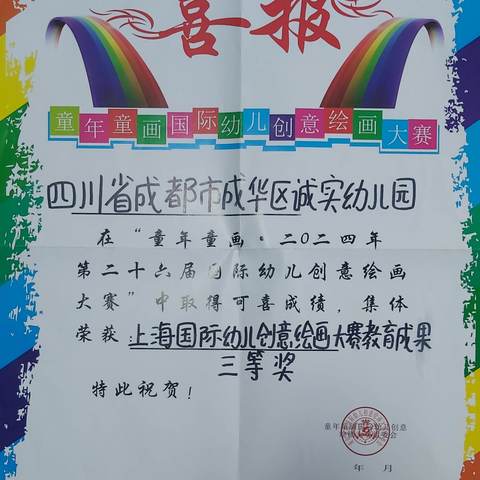 喜报
童年童画国际幼儿创意绘画大赛
四川省成都市成华区诚实幼儿园
在“童年童画·二〇二四年
第二十六届国际幼儿创意绘画
大赛”中取得可喜成绩，集体
荣获 上海国际幼儿创意绘画大赛教育成果
三等奖
特此祝贺！
年 月